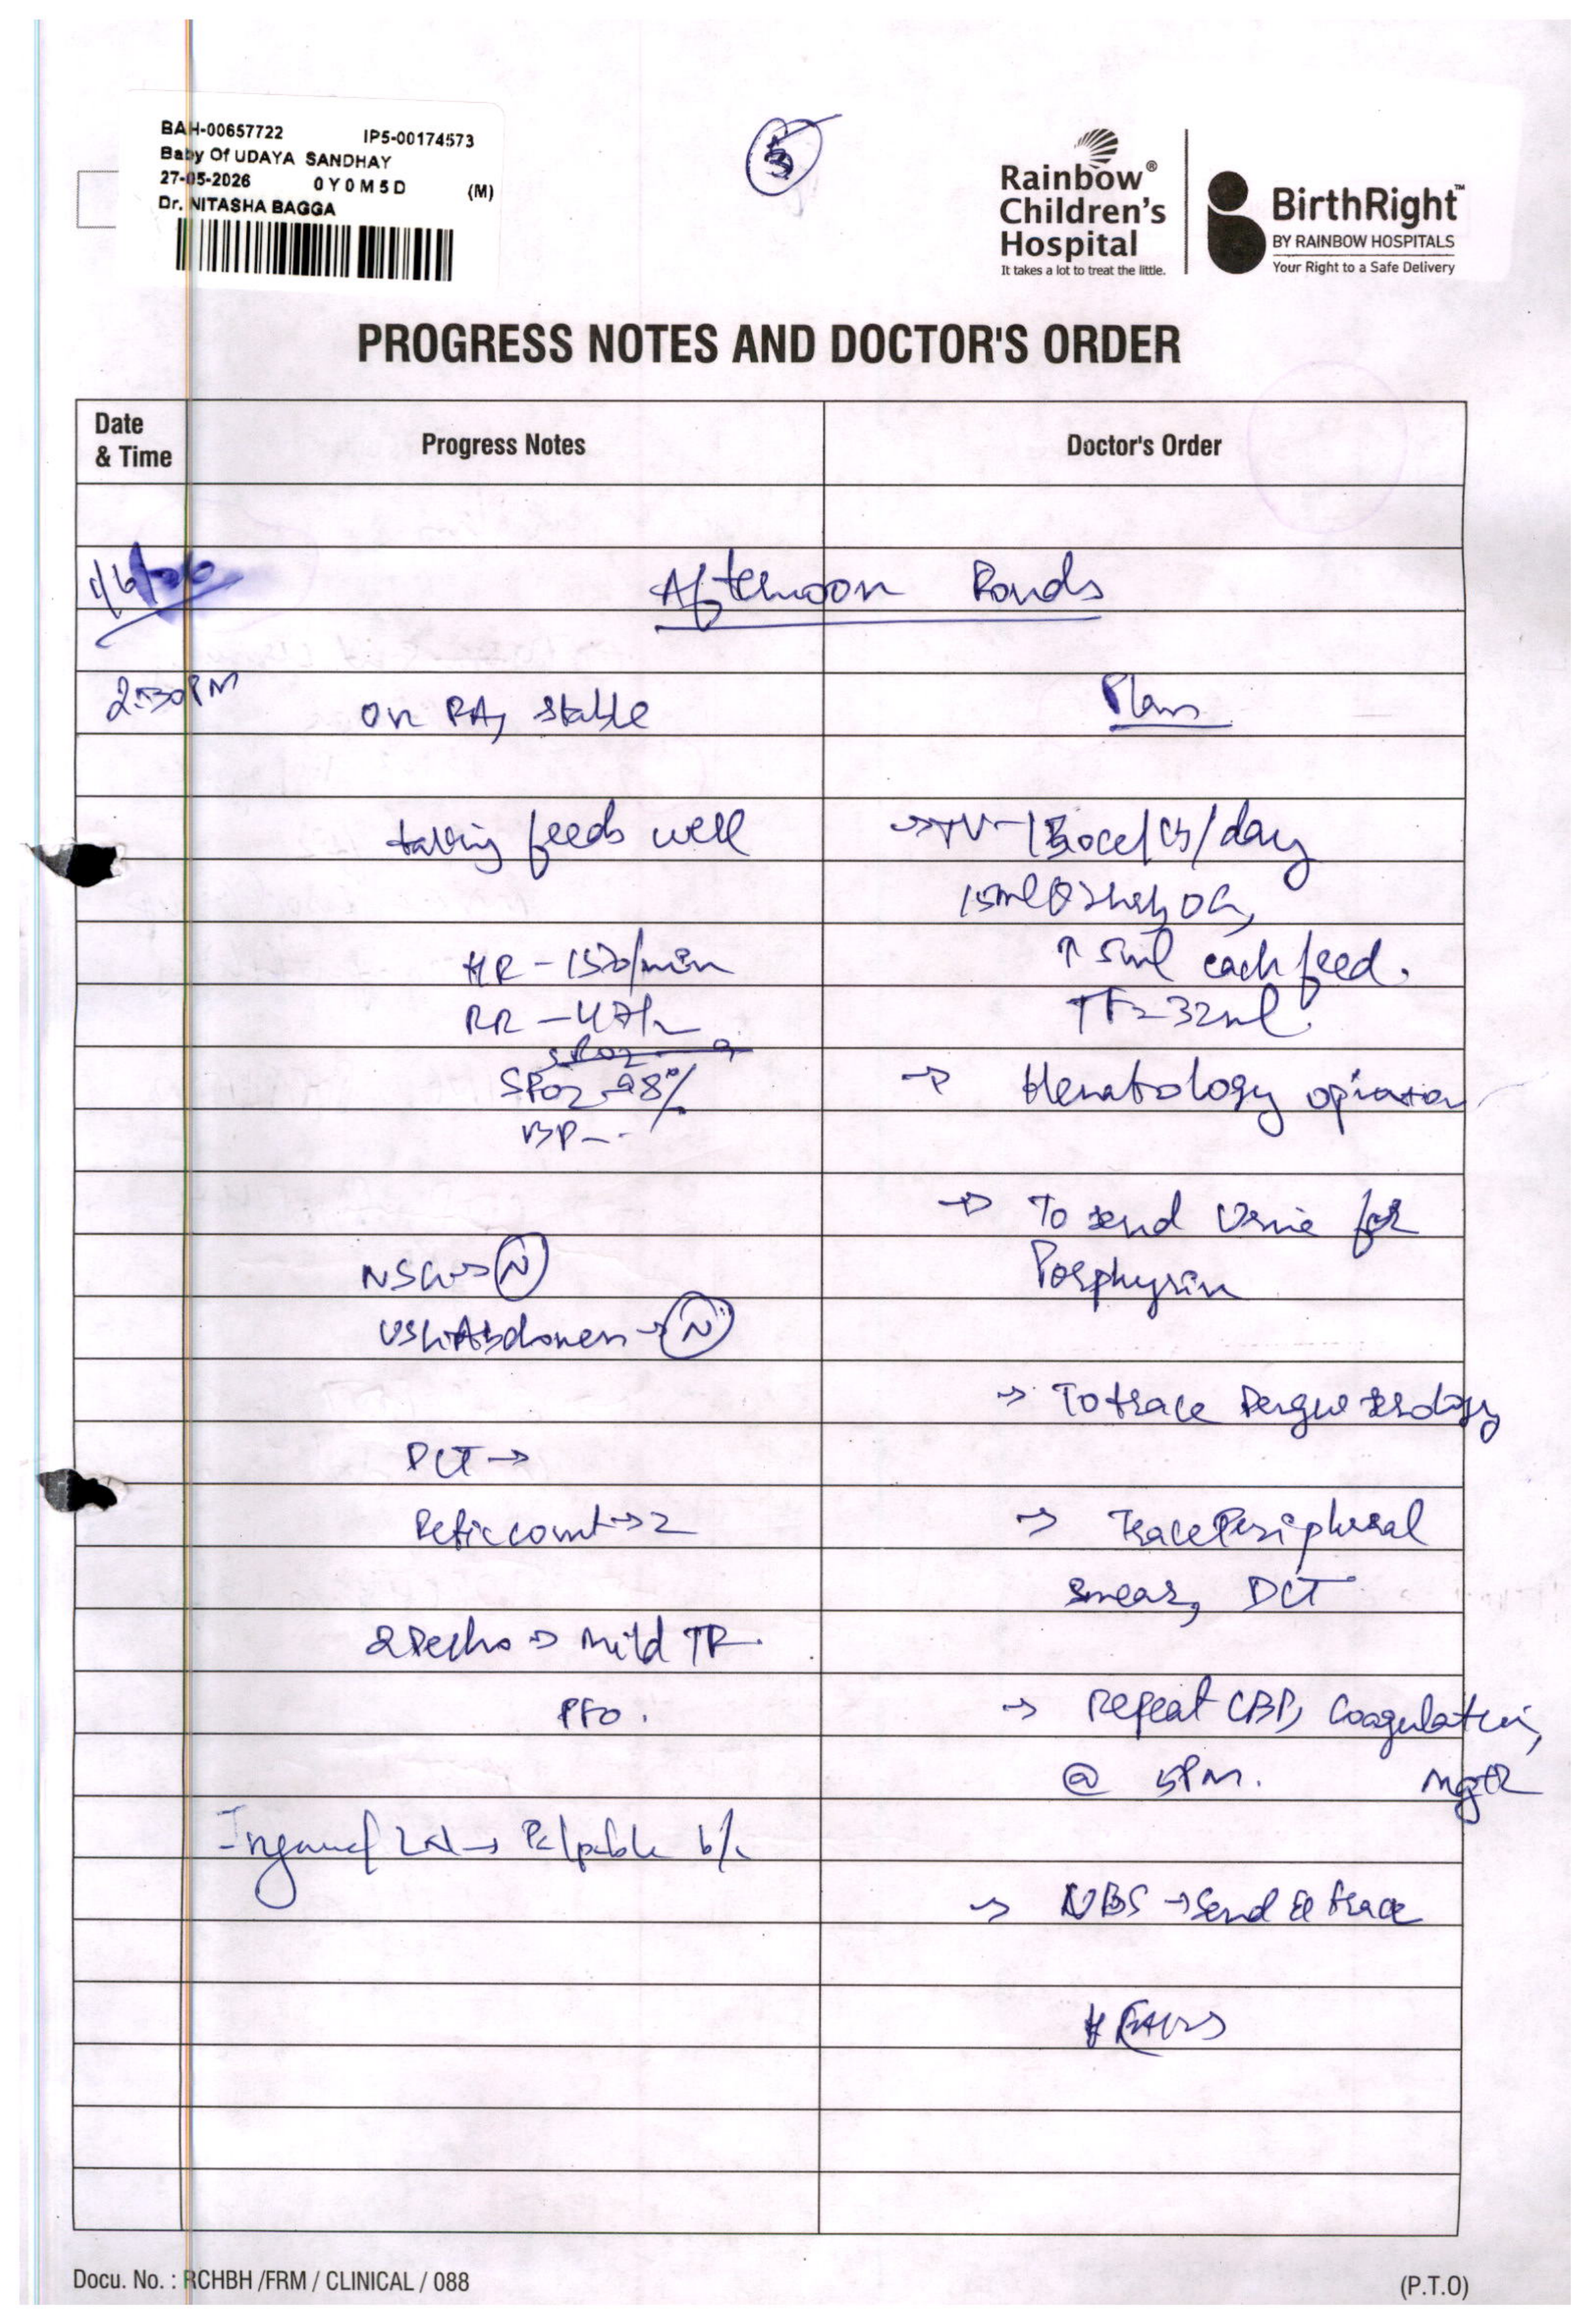 BAH-00657722 IP5-00174573
Baby Of UDAYA SANDHAY
27-05-2026 0Y0M5D (M)
Dr. NITASHA BAGGA
5
Rainbow®
Children's
Hospital
It takes a lot to treat the little.
BirthRight™
BY RAINBOW HOSPITALS
Your Right to a Safe Delivery
PROGRESS NOTES AND DOCTOR'S ORDER
Date
& Time
Progress Notes
Doctor's Order
1/6/26
Afternoon Rounds
2:30PM
on RA, stable
Plan
taking feeds well
→ TV - 150cc/kg/day
15ml @ 2hrly OG,
HR - 150/min
↑ 5ml each feed.
RR - 47/
TF = 32ml.
SPO2 98%
→ Hematology opinion
BP - -
→ To send Urine for
Porphyrin
NSG → N
USG Abdomen → N
→ To trace Dengue serology
DCT →
Retic count → 2
→ Trace Peripheral
smear, DCT
2Decho → Mild TR.
PFO.
→ Repeat CBP, Coagulation,
@ 5PM.
Inguinal LN → Palpable b/l
→ NBS → Send & trace
Docu. No. : RCHBH /FRM / CLINICAL / 088
(P.T.O)